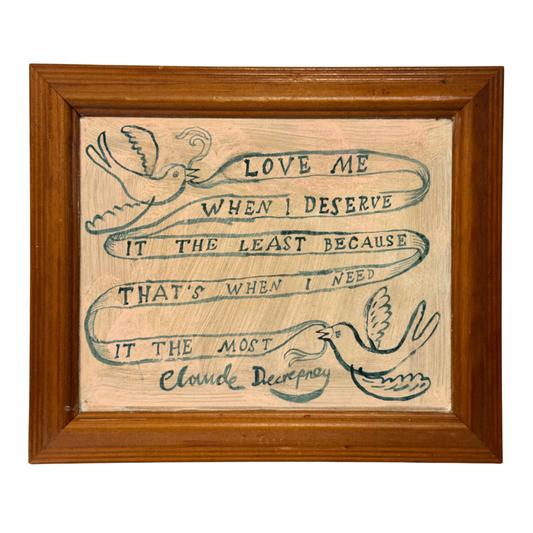 LOVE ME
WHEN I DESERVE
IT THE LEAST BECAUSE
THAT'S WHEN I NEED
IT THE MOST
Claude Decrepney